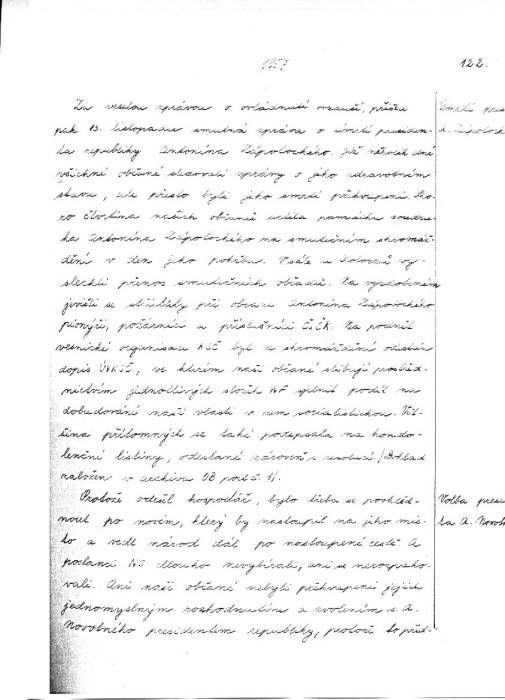 1957
122.
Za veselou zprávou o ovládnutí ovzduší, přišla
pak 13. listopadu smutná zpráva o úmrtí presiden-
ta republiky Antonína Zápotockého. Již několik dní
všichni občané sledovali zprávy o jeho zdravotním
stavu, ale přesto byli jeho smrtí překvapeni. Sko-
ro čtvrtina našich občanů uctila památku soudru-
ha Antonína Zápotockého na smutečním shromáž-
dění v den jeho pohřbu. V sále u Kolorzů vy-
slechli přenos smutečních obřadů. Na vyzdobeném
jevišti se střídaly při obrazu Antonína Zápotockého
pionýři, požárníci a příslušníci ČSČK. Na podnět
vesnické organisace KSČ byl ze shromáždění odeslán
dopis ÚVKSČ, ve kterém naši občané slibují prostřed-
nictvím jednotlivých složek NF splnit podíl na
dobudování naší vlasti v zem socialistickou. Vět-
šina přítomných se také podepsala na kondo-
lenční listiny, odeslané zároveň s resolucí. /Doklad
založen v archivu OB pod č. 1/.
Protože odešel hospodář, bylo třeba se poohléd-
nout po novém, který by nastoupil na jeho mís-
to a vedl národ dál po nastoupené cestě. A
poslanci NS dlouho nevybírali, ani se nerozpako-
vali. Ani naši občané nebyli překvapeni jejich
jednomyslným rozhodnutím a zvolením s. A.
Novotného presidentem republiky, protože to před-
Úmrtí pres
A. Zápotock
Volba presi
ta A. Novot